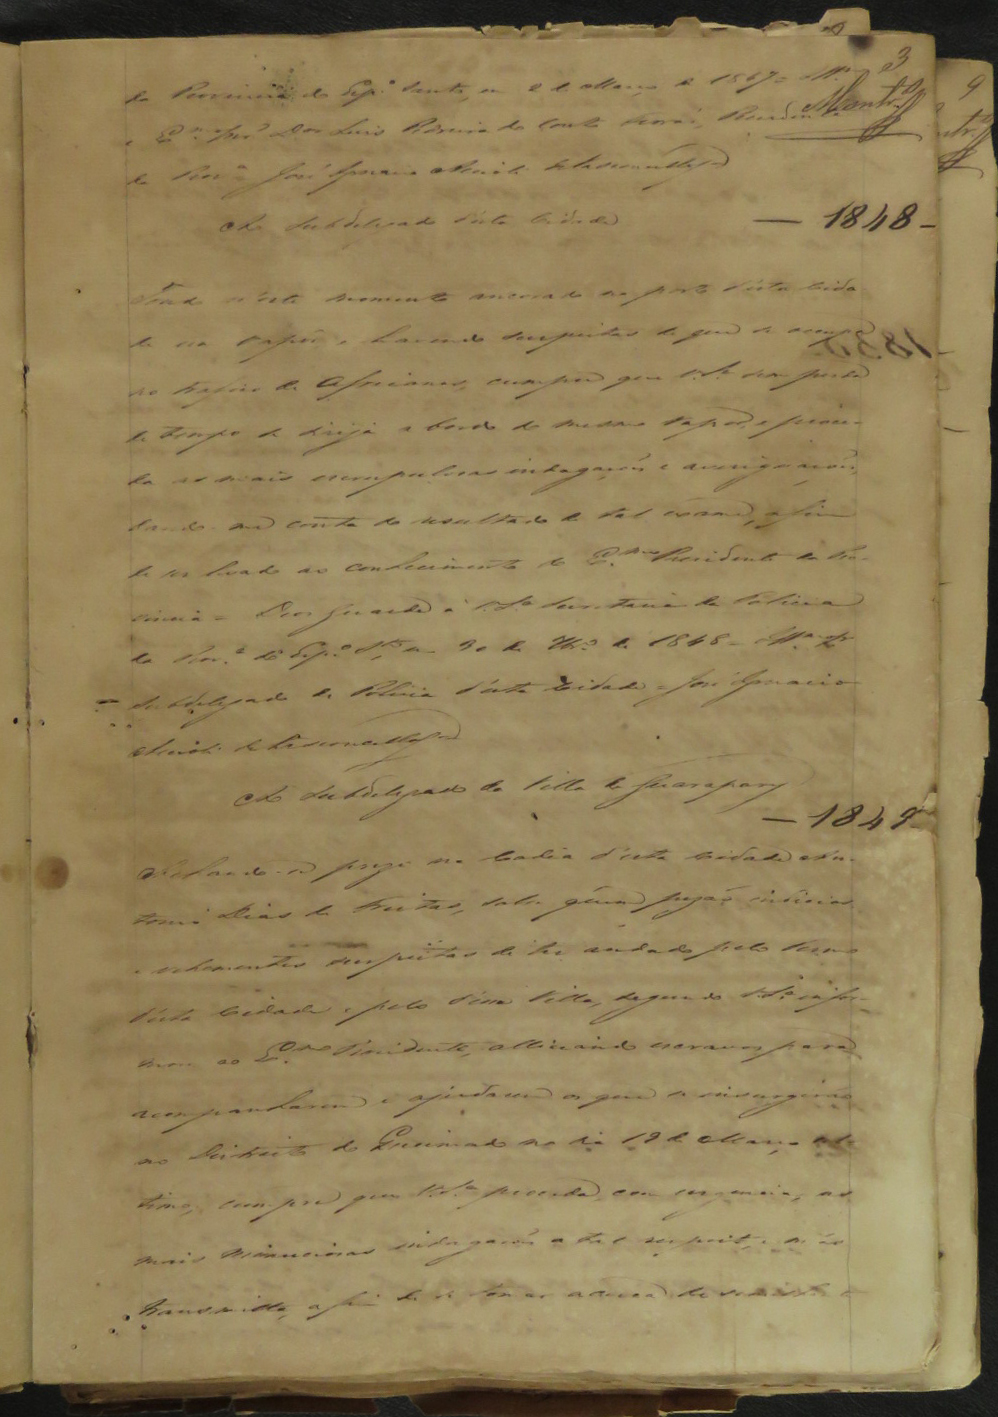 3
da Provincia do Esp.º Santo, em 2 de Março de 1847 = Ill.mo
e Ex.mo Snr.º Dor Luis Pedreira do Couto Ferraz, Presidente
da Prov.ª José Ignacio Accioli de Vasconcellos
Ao Subdelegado d'esta Cidade
— 1848 —
n'este momento ancorado no porto d'esta Cida
de um vapor, e havendo suspeitas de que se occupe
no trafico de Africanos, cumpre que V.S.ª sem perda
de tempo se dirija a bordo do mesmo vapor, e proce-
da as mais escrupulosas indagações e averiguações,
dando-me conta do resultado de tal exame, afim
de ser levado ao conhecimento do Ex.mo Presidente da Pro-
vincia = Deos Guarde a V.S.ª Secretaria da Policia
da Prov.ª do Esp.º St.º em 20 de de 1848 = Ill.mo Sr.
Subdelegado de Policia d'esta Cidade = José Ignacio
Accioli de Vasconcellos
Ao Subdelegado da Villa de Guarapary
— 1849
Achando-se preso na Cadia d'esta Cidade An-
tonio Dias de Freitas, sobre quem pezão indicios
e vehementes suspeitas de ter andado pelo termo
d'esta Cidade e pelo d'essa Villa, segundo V.S.ª infor-
mou ao Ex.mo Presidente, alliciando escravos para
acompanharem e ajudarem os que se insurgirão
no Districto do Queimado no dia 19 de Março ul-
timo, cumpre que V.S.ª proceda com urgencia, as
mais minuciosas indagações a tal respeito, e m'as
transmitta, afim de se tomar acerca de